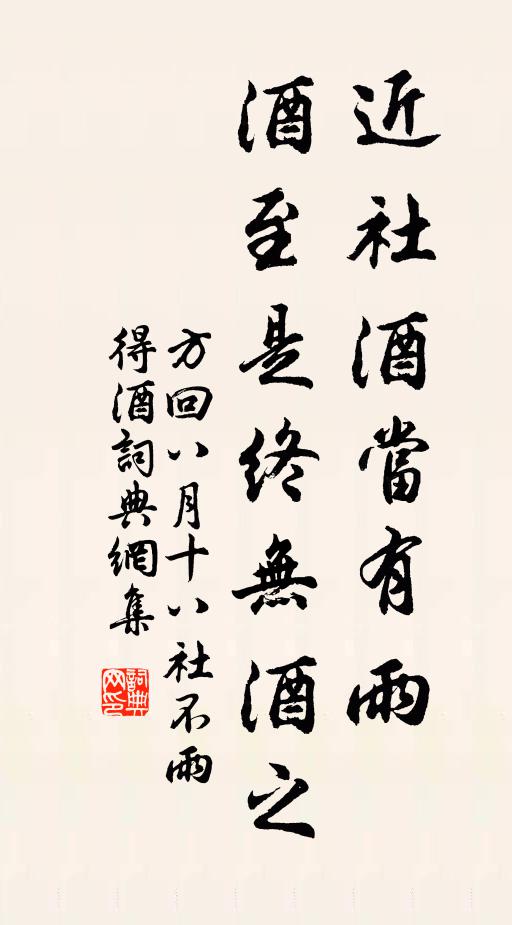 近社酒當有雨
酒至是終無酒之
方回八月十八社不雨
得酒詞典網集
詞典网印